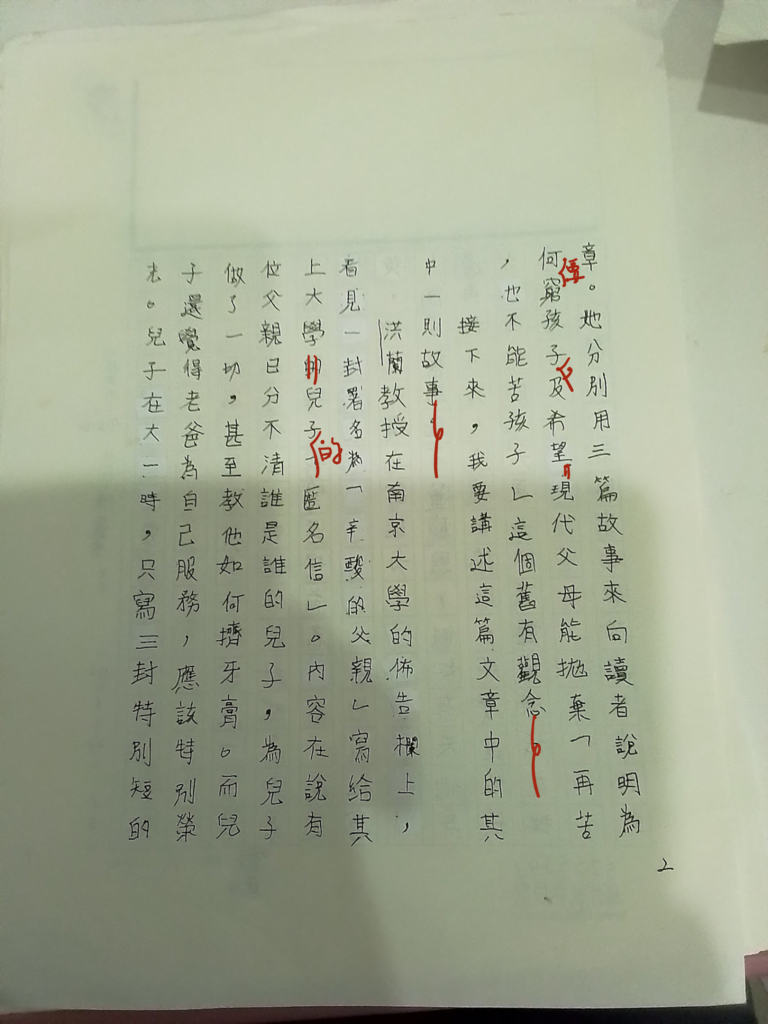 章。她分別用三篇故事來向讀者說明為
何窮孩子及希望現代父母能拋棄「再苦
，也不能苦孩子」這個舊有觀念
接下來，我要講述這篇文章中的其
中一則故事
洪蘭教授在南京大學的佈告欄上，
看見一封署名為「辛酸的父親」寫給其
上大學兒子的匿名信」。內容在說有
位父親日分不清誰是誰的兒子，為兒子
做了一切，甚至教他如何擠牙膏。而兒
子還覺得老爸為自己服務，應該特別榮
。兒子在大一時，只寫三封特別短的
2